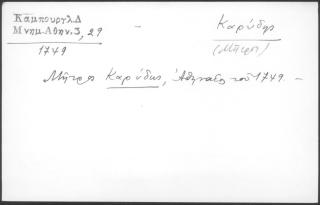 Καμπουργλ. Δ
Μνημ. Αθην. 3, 29
1749
- Καρύδης
(Μήτρος)
Μήτρος Καρύδης, Ἀθηναῖος τοῦ 1749. -